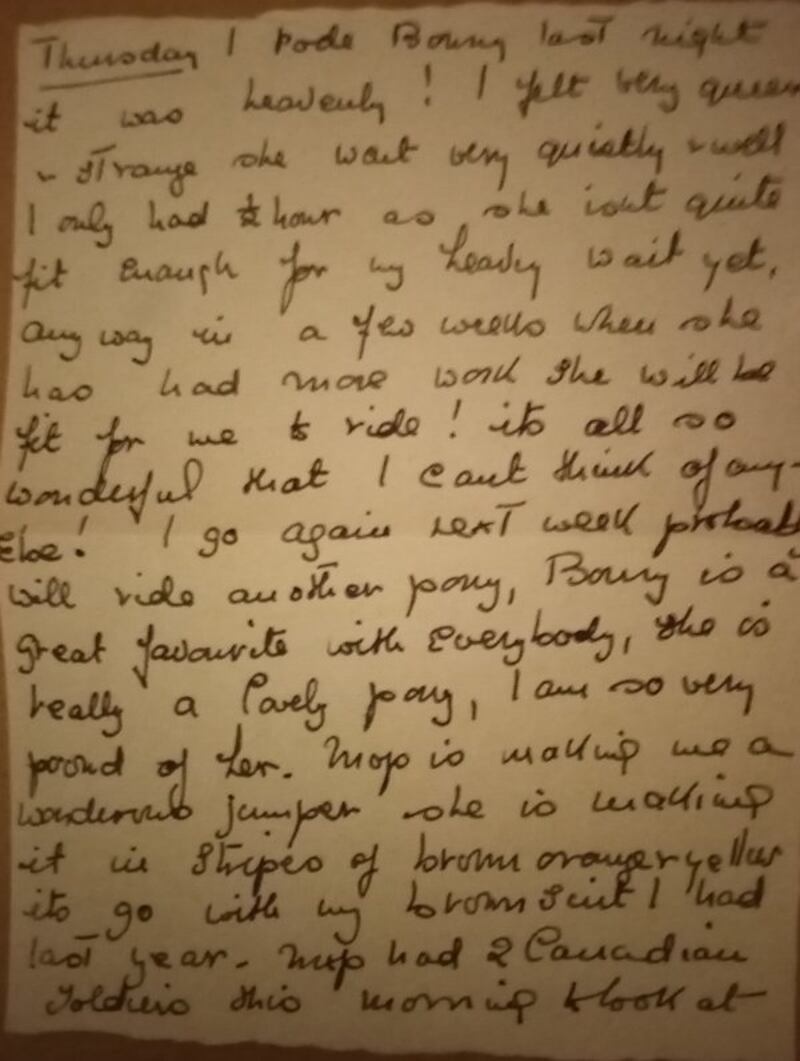 Thursday I rode Bonny last night
it was heavenly! I felt very queer
& strange she want very quietly & well
I only had ½ hour as she isnt quite
fit enough for my heavy wait yet,
any way in a few weeks when she
has had more work she will be
fit for me to ride! its all so
wonderful that I cant think of any-
else! I go again next week
will ride another pony, Bonny is a
great favourite with everybody, she is
really a lovely pony, I am so very
proud of her. Mop is making me a
jumper she is making
it in stripes of brown orange & yellow
its go with my brown suit I had
last year. Mop had 2 Canadian
soldiers this morning to look at